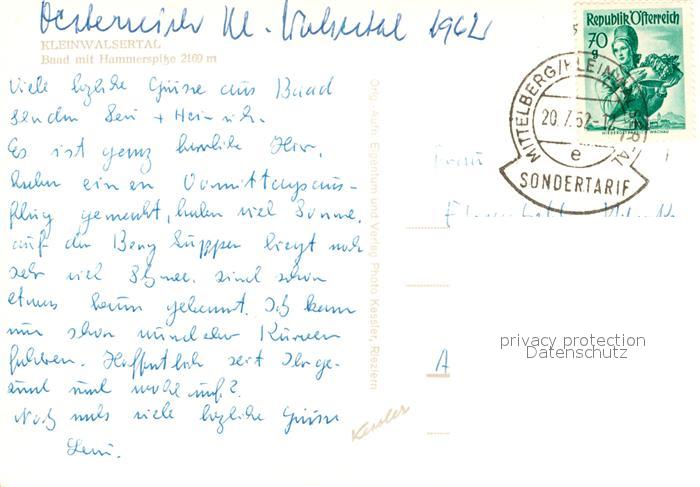 Oesterreich Kl. Walsertal 1962
KLEINWALSERTAL
Baad mit Hammerspitze 2169 m
Viele herzliche Grüsse aus Baad
senden Leni + Heinrich.
Es ist ganz herrliche Hier,
haben einen Vormittagsaus-
flug gemacht, haben viel Sonne,
auf den Berg Kuppen liegt noch
sehr viel Schnee. sind schon
etwas braun gebrannt. Ich kann
nur schon wunder Kurven
fahren. Hoffentlich seit Ihr ge-
sund und wohl auf?
Noch mals viele herzliche Grüsse
Leni.
Orig.-Aufn. Eigentum und Verlag Photo Kessler, Riezlern
Kessler
Republik Österreich
70
g
WACHAU
MITTELBERG/KLEINWALSERTAL
20.7.62-17
e
SONDERTARIF
Frau
A
privacy protection
Datenschutz